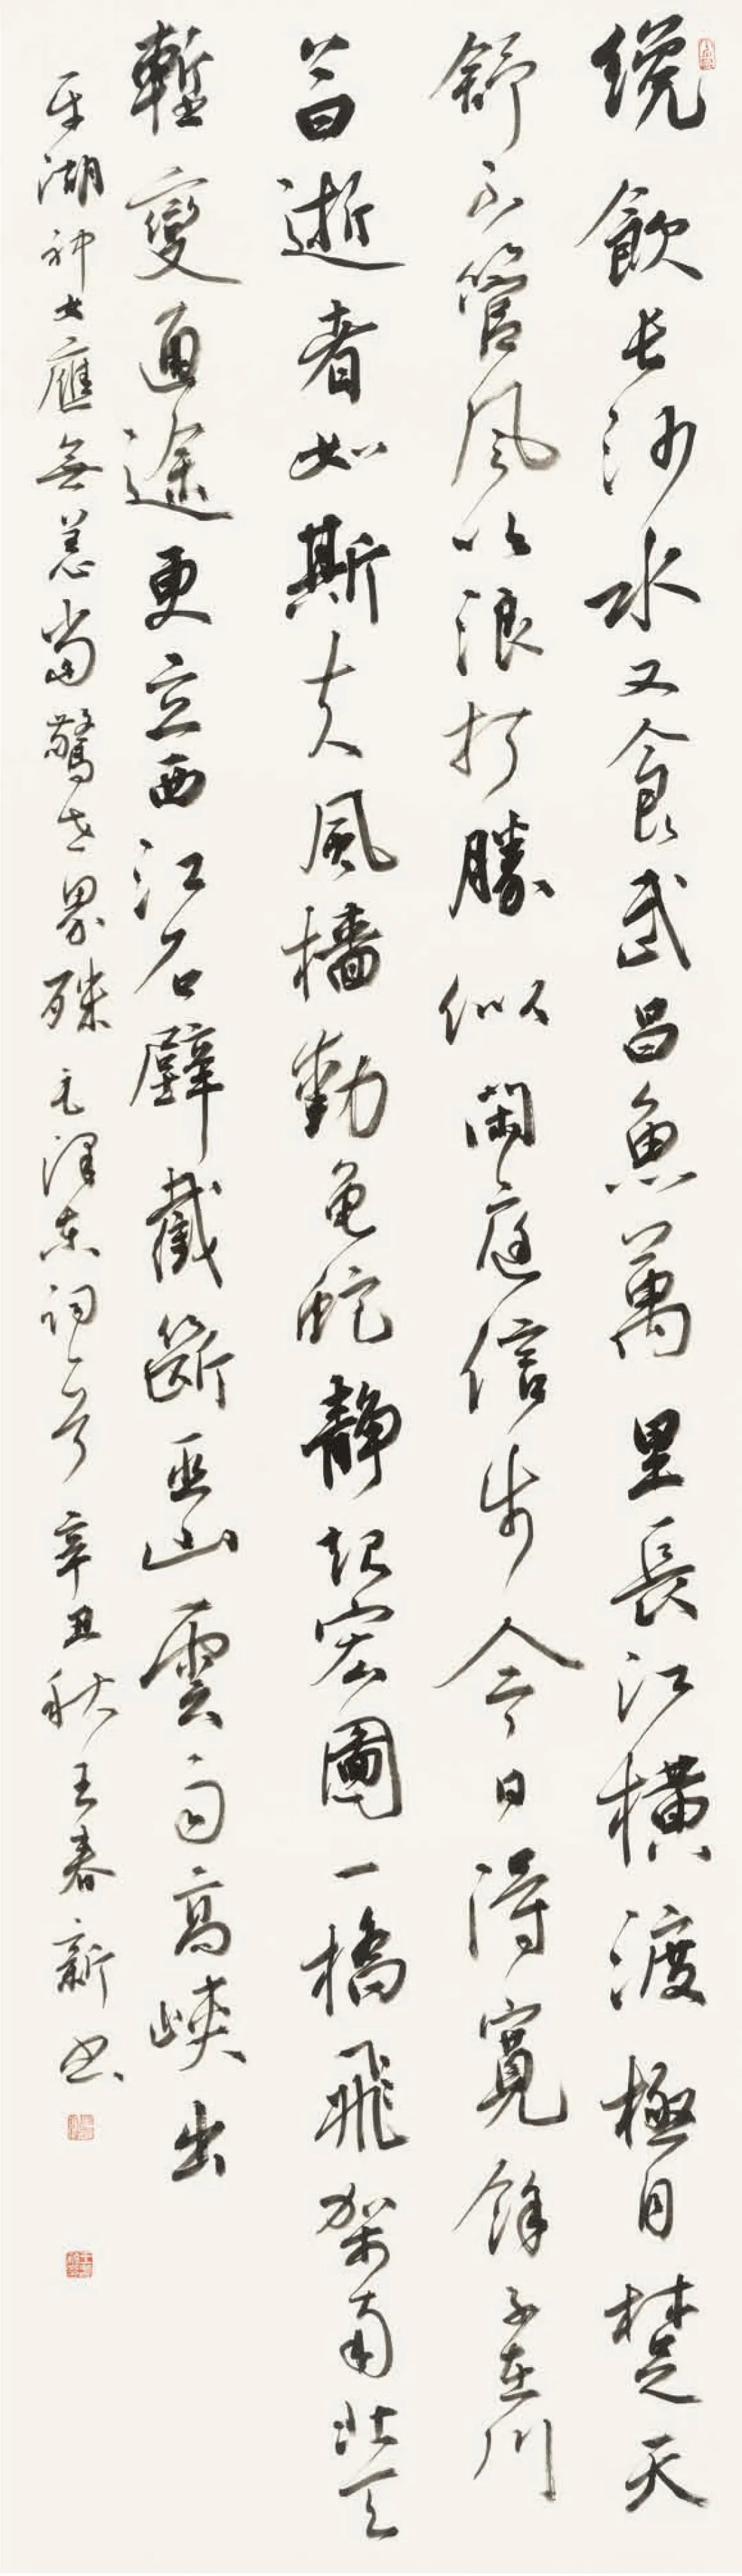 纔飲長沙水又食武昌魚萬里長江橫渡極目楚天
舒不管風吹浪打勝似閑庭信步今日得寬餘子在川
上曰逝者如斯夫風檣動龜蛇靜起宏圖一橋飛架南北天
塹變通途更立西江石壁截斷巫山雲雨高峽出
平湖神女應無恙當驚世界殊毛澤東詞一首辛丑秋王春新书